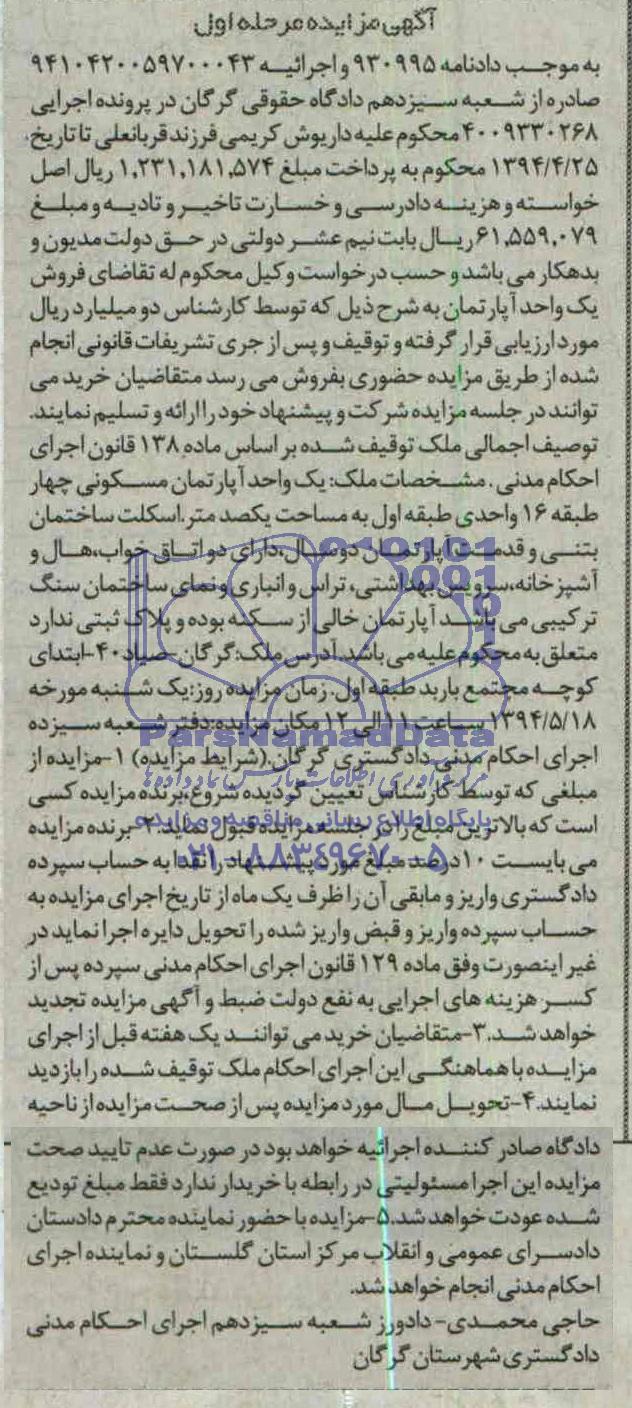 آگهی مزایده مرحله اول
به موجب دادنامه ۹۳۰۹۹۵ و اجرائیه ۹۴۱۰۴۲۰۰۵۹۷۰۰۰۴۳
صادره از شعبه سیزدهم دادگاه حقوقی گرگان در پرونده اجرایی
۴۰۰۹۳۳۰۲۶۸ محکوم علیه داریوش کریمی فرزند قربانعلی تا تاریخ
۱۳۹۴/۴/۲۵ محکوم به پرداخت مبلغ ۱,۲۳۱,۱۸۱,۵۷۴ ریال اصل
خواسته و هزینه دادرسی و خسارت تاخیر و تادیه و مبلغ
۶۱,۵۵۹,۰۷۹ ریال بابت نیم عشر دولتی در حق دولت مدیون و
بدهکار می باشد و حسب درخواست وکیل محکوم له تقاضای فروش
یک واحد آپارتمان به شرح ذیل که توسط کارشناس دو میلیارد ریال
مورد ارزیابی قرار گرفته و توقیف و پس از جری تشریفات قانونی انجام
شده از طریق مزایده حضوری بفروش می رسد متقاضیان خرید می
توانند در جلسه مزایده شرکت و پیشنهاد خود را ارائه و تسلیم نمایند.
توصیف اجمالی ملک توقیف شده بر اساس ماده ۱۳۸ قانون اجرای
احکام مدنی . مشخصات ملک: یک واحد آپارتمان مسکونی چهار
طبقه ۱۶ واحدی طبقه اول به مساحت یکصد متر.اسکلت ساختمان
بتنی و قدمت آپارتمان دوسال،دارای دو اتاق خواب،هال و
آشپزخانه،سرویس بهداشتی، تراس و انباری و نمای ساختمان سنگ
ترکیبی می باشد آپارتمان خالی از سکنه بوده و پلاک ثبتی ندارد
متعلق به محکوم علیه می باشد. آدرس ملک: گرگان-صیاد ۴۰-ابتدای
کوچه مجتمع باربد طبقه اول. زمان مزایده روز: یک شنبه مورخه
۱۳۹۴/۵/۱۸ ساعت ۱۱ الی ۱۲ مکان مزایده: دفتر شعبه سیزده
ParsNamadData
اجرای احکام مدنی دادگستری گرگان.(شرایط مزایده) ۱-مزایده از
مرکز فرآوری اطلاعات پارس نماد داده ها
مبلغی که توسط کارشناس تعیین گردیده شروع،برنده مزایده کسی
پایگاه اطلاع رسانی مناقصه و مزایده
است که بالاترین مبلغ را در جلسه مزایده قبول نماید.۲-برنده مزایده
۰۲۱-۸۸۳۴۹۶۷۰-۵
می بایست ۱۰ درصد مبلغ مورد پیشنهاد را نقدا به حساب سپرده
دادگستری واریز و مابقی آن را ظرف یک ماه از تاریخ اجرای مزایده به
حساب سپرده واریز و قبض واریز شده را تحویل دایره اجرا نماید در
غیر اینصورت وفق ماده ۱۲۹ قانون اجرای احکام مدنی سپرده پس از
کسر هزینه های اجرایی به نفع دولت ضبط و آگهی مزایده تجدید
خواهد شد.۳-متقاضیان خرید می توانند یک هفته قبل از اجرای
مزایده با هماهنگی این اجرای احکام ملک توقیف شده را بازدید
نمایند.۴-تحویل مال مورد مزایده پس از صحت مزایده از ناحیه
دادگاه صادر کننده اجرائیه خواهد بود در صورت عدم تایید صحت
مزایده این اجرا مسئولیتی در رابطه با خریدار ندارد فقط مبلغ تودیع
شده عودت خواهد شد.۵-مزایده با حضور نماینده محترم دادستان
دادسرای عمومی و انقلاب مرکز استان گلستان و نماینده اجرای
احکام مدنی انجام خواهد شد.
حاجی محمدی- دادورز شعبه سیزدهم اجرای احکام مدنی
دادگستری شهرستان گرگان